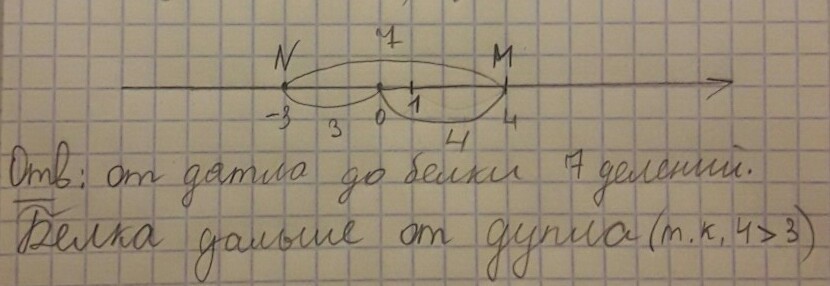 7
N M
-3 0 1 4
3 4
Отв: от дятла до белки 7 делений.
Белка дальше от дупла (т.к. 4>3)